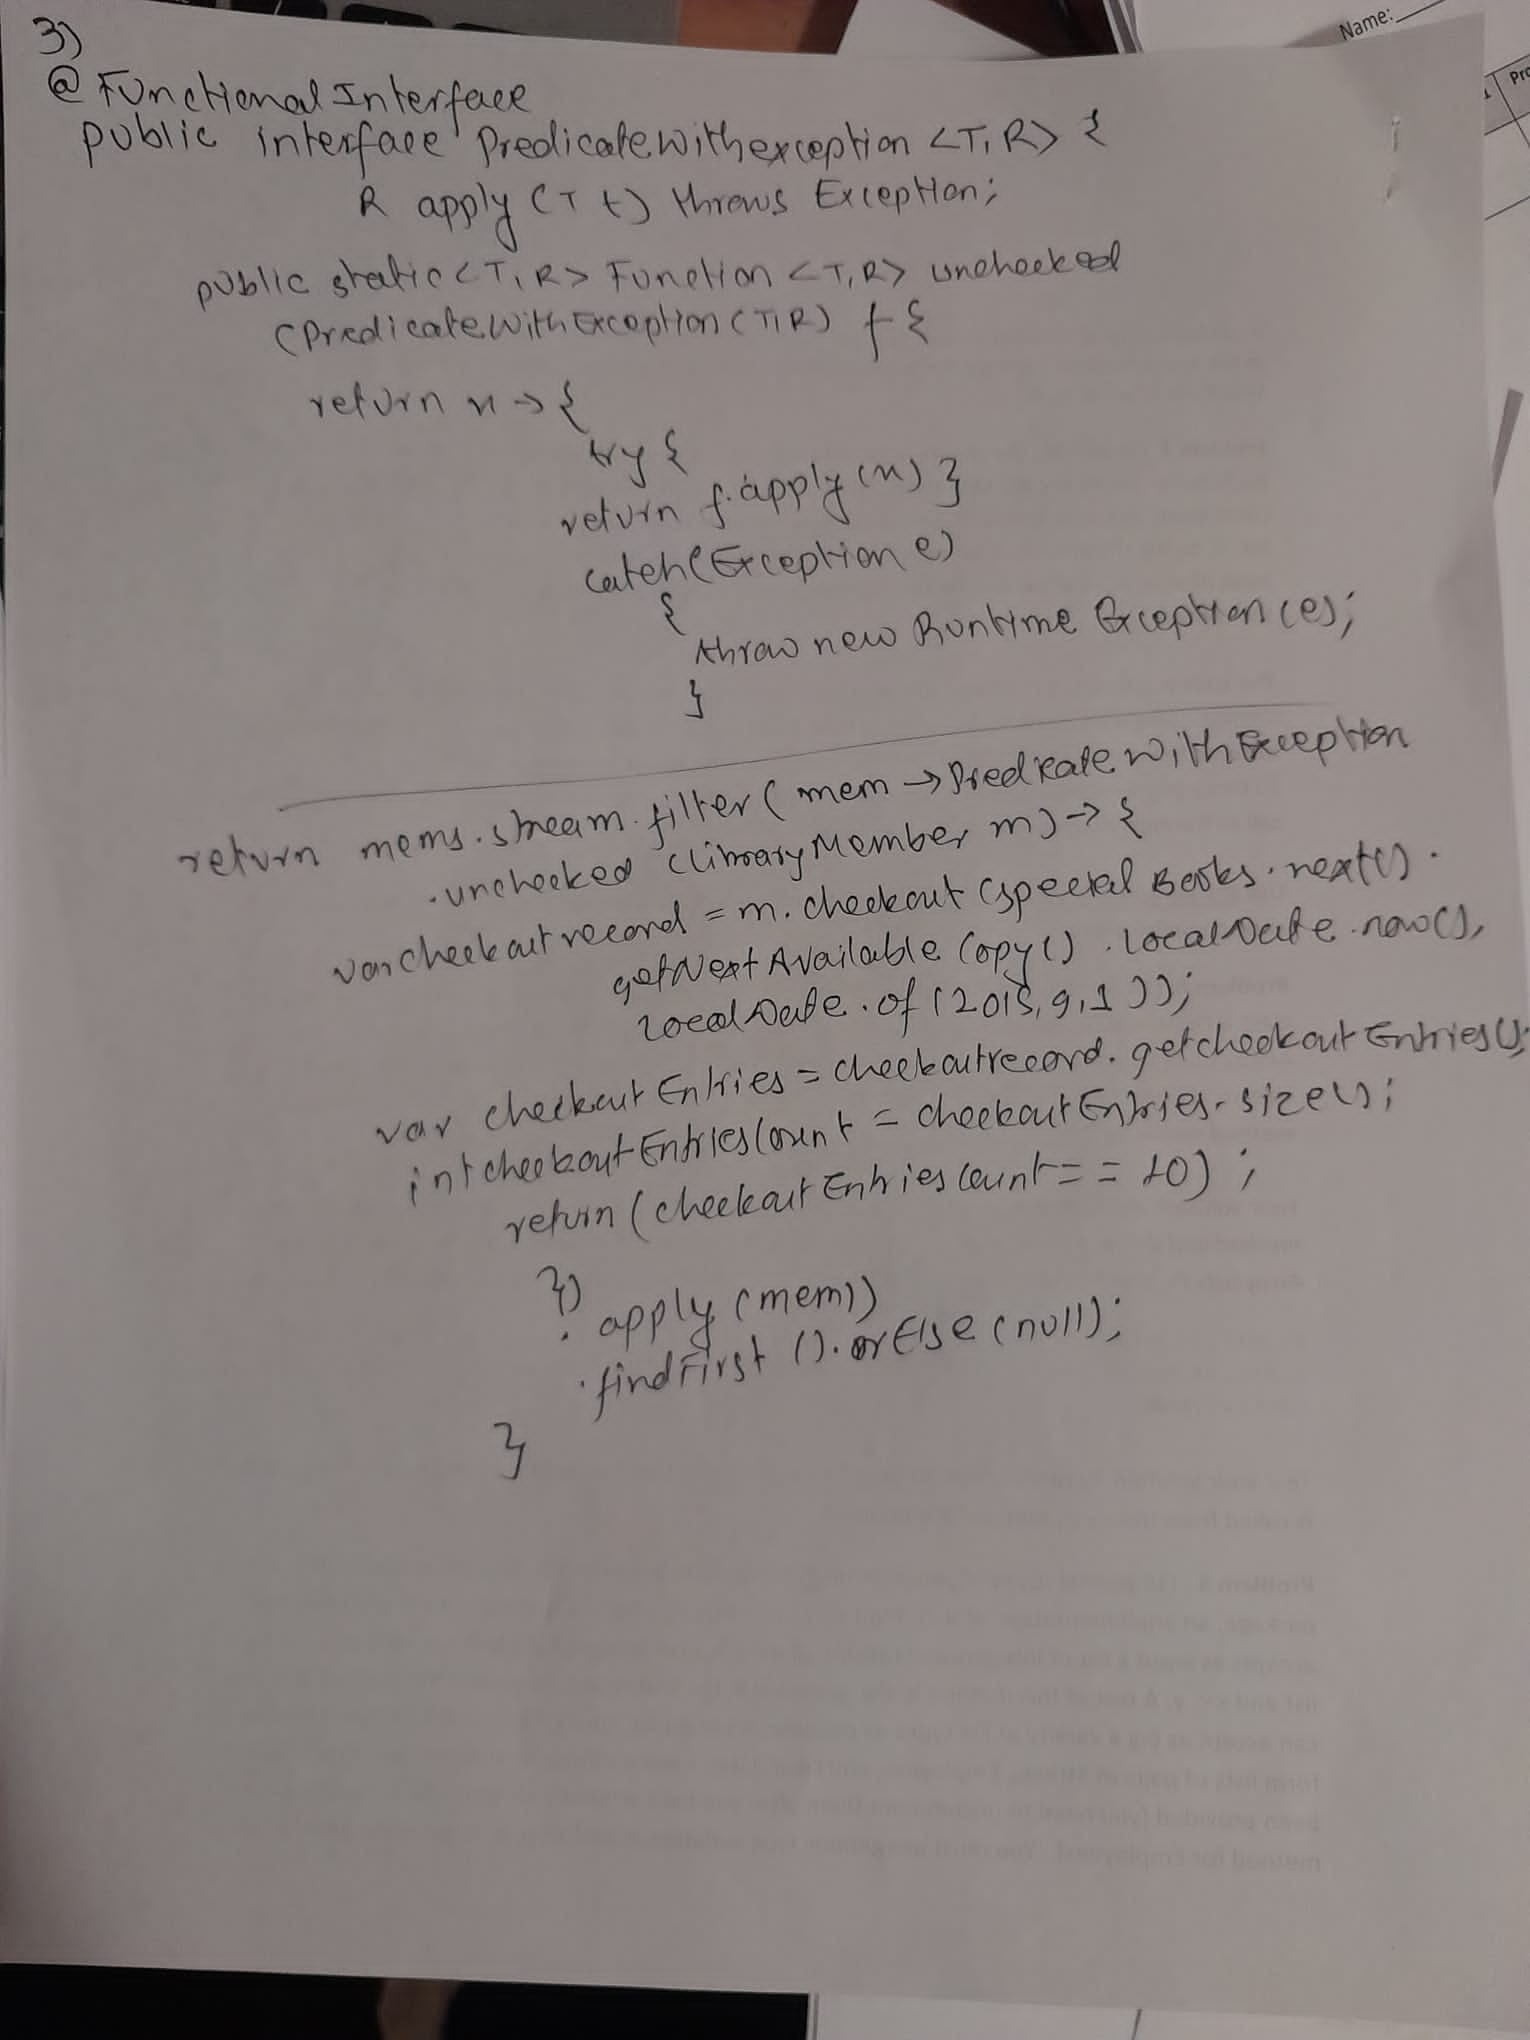 Name:
Pro
3)
@FunctionalInterface
public interface Predicatewithexception <T,R> {
R apply (T t) throws Exception;
public static <T,R> Function <T,R> unchecked
(PredicateWithException (T,R) f {
return x -> {
try {
return f.apply(x) }
catch(Exception e)
{
throw new Runtime Exception (e);
}
return mems.stream.filter (mem -> PredicateWithException
.unchecked (LibraryMember m) -> {
var checkoutrecord = m.checkout (special Books.next().
getNextAvailable Copy() . LocalDate.now(),
LocalDate.of(2015,9,1));
var checkout Entries = checkoutrecord.getcheckoutEntries();
int checkoutEntriesCount = checkoutEntries.size();
return (checkoutEntriesCount == 10) ;
})
.apply (mem))
.findFirst ().orElse (null);
}